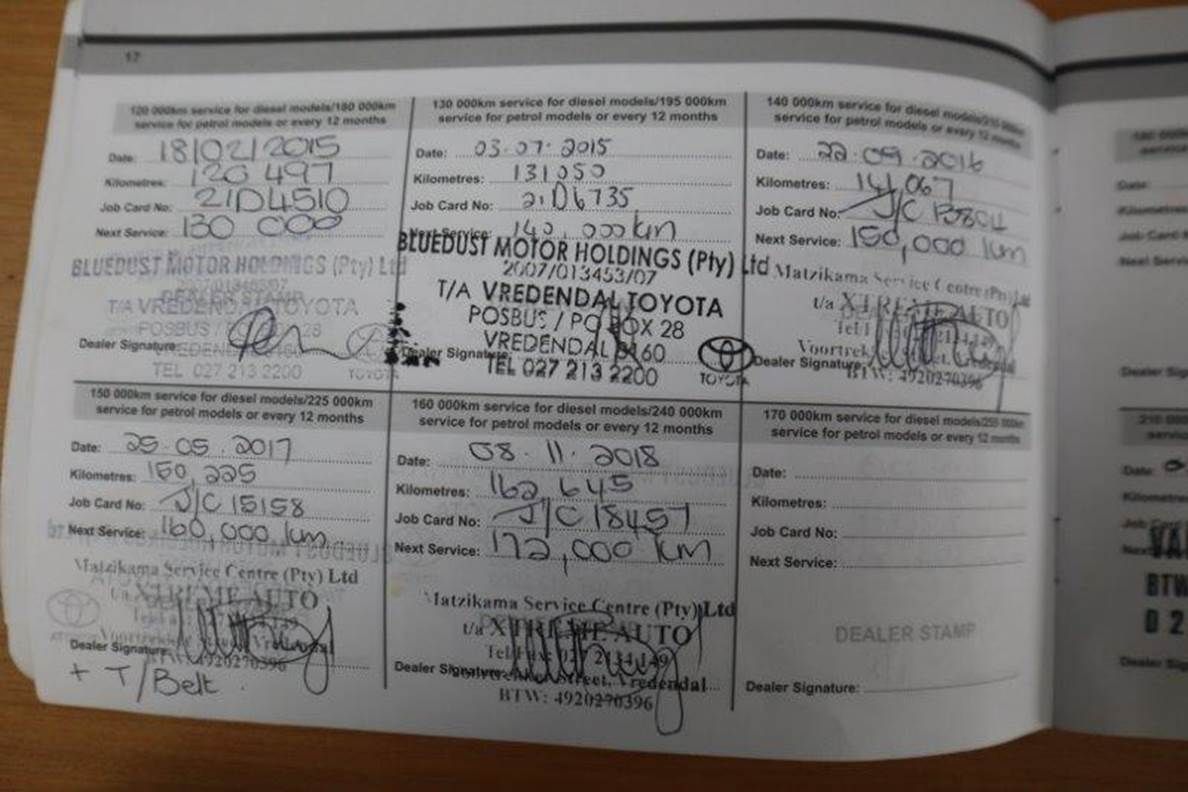 17
120 000km service for diesel models/180 000km
service for petrol models or every 12 months
Date: 18/02/2015
Kilometres: 120 497
Job Card No: 21D4510
Next Service: 130 000
BLUEDUST MOTOR HOLDINGS (Pty) Ltd
2007/013453/07
T/A VREDENDAL TOYOTA
POSBUS / 28
VREDENDAL 8160
Dealer Signature:
TEL 027 213 2200
TOYOTA
130 000km service for diesel models/195 000km
service for petrol models or every 12 months
Date: 03.07.2015
Kilometres: 131 050
Job Card No: 21D6735
Next Service: 140, 000km
BLUEDUST MOTOR HOLDINGS (Pty) Ltd
2007/013453/07
T/A VREDENDAL TOYOTA
POSBUS / PO BOX 28
VREDENDAL 8160
Dealer Signature:
TEL 027 213 2200
TOYOTA
140 000km service for diesel models/210 000km
service for petrol models or every 12 months
Date: 22.09.2016
Kilometres: 141,067
Job Card No: J/C
Next Service: 150,000 km
Matzikama Service Centre (Pty) Ltd
t/a XTREME AUTO
Dealer Signature:
BTW: 4920270396
150 000km service for diesel models/225 000km
service for petrol models or every 12 months
Date: 25.05.2017
Kilometres: 150,225
Job Card No: J/C 15158
Next Service: 160,000 km
Matzikama Service Centre (Pty) Ltd
t/a XTREME AUTO
Dealer Signature:
4920270396
+ T/Belt
160 000km service for diesel models/240 000km
service for petrol models or every 12 months
Date: 08.11.2018
Kilometres: 162,645
Job Card No: J/C 18457
Next Service: 172,000 km
Matzikama Service Centre (Pty) Ltd
t/a XTREME AUTO
Dealer Signature:
Street, Vredendal
BTW: 4920270396
170 000km service for diesel models/255 000km
service for petrol models or every 12 months
Date:
Kilometres:
Job Card No:
Next Service:
DEALER STAMP
Dealer Signature:
Date:
Dealer Signature:
Date:
BTW
0 2
Dealer